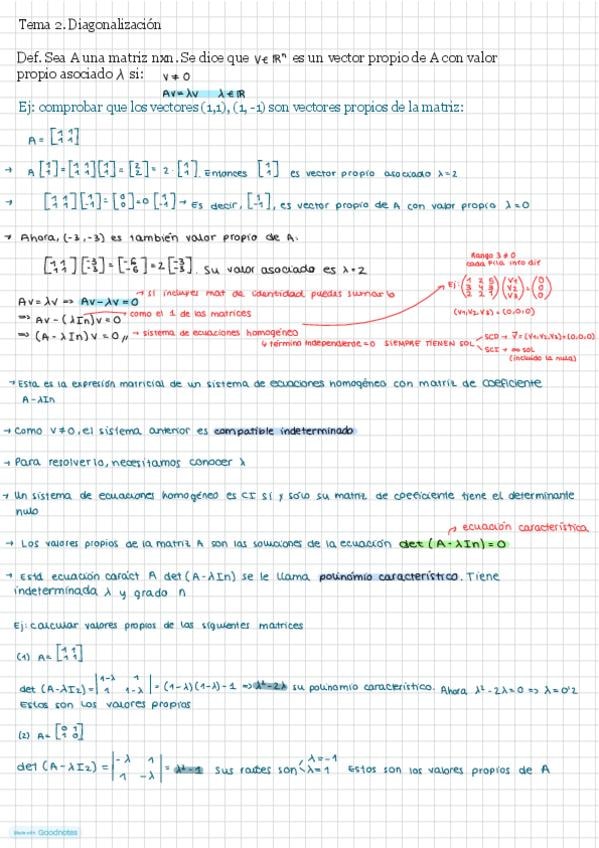 Tema 2. Diagonalización
Def. Sea A una matriz nxn. Se dice que v∈ℝⁿ es un vector propio de A con valor
propio asociado λ si: v ≠ 0
Av=λv λ∈ℝ
Ej: comprobar que los vectores (1,1), (1, -1) son vectores propios de la matriz:
A = [1 1; 1 1]
→ A [1; 1] = [1 1; 1 1] [1; 1] = [2; 2] = 2 · [1; 1]. Entonces [1; 1] es vector propio asociado λ=2
→ [1 1; 1 1] [1; -1] = [0; 0] = 0 [1; -1] → Es decir, [1; -1], es vector propio de A con valor propio λ=0
→ Ahora, (-3,-3) es también valor propio de A:
[1 1; 1 1] [-3; -3] = [-6; -6] = 2 [-3; -3]. Su valor asociado es λ=2
Rango 3 ≠ 0
cada fila
Av = λv => Av-λv=0 → si incluyes mat de identidad puedes sumarlo
Ej:
(v1,v2,v3) = (0,0,0)
=> Av-(λIn)v=0 → como el 1 de las matrices
=> (A-λIn)v=0 // → sistema de ecuaciones homogéneo
↳ término independiente=0 SIEMPRE TIENEN SOL
SCD → v⃗=(v1,v2,v3)=(0,0,0)
SCI → ∞ sol
(incluido la nula)
→ Esta es la expresión matricial de un sistema de ecuaciones homogéneo con matriz de coeficiente
A-λIn
→ Como v≠0, el sistema anterior es compatible indeterminado
→ Para resolverlo, necesitamos conocer λ
→ Un sistema de ecuaciones homogéneo es CI sí y sólo su matriz de coeficiente tiene el determinante
nulo
→ ecuación característica
→ Los valores propios de la matriz A son las soluciones de la ecuación det(A-λIn)=0
→ Esta ecuación caráct A det(A-λIn) se le llama polinomio característico. Tiene
indeterminada λ y grado n
Ej: calcular valores propios de las siguientes matrices
(1) A = [1 1; 1 1]
det (A-λI2) = |1-λ 1; 1 1-λ| = (1-λ)(1-λ)-1 => λ²-2λ su polinomio característico. Ahora λ²-2λ=0 => λ=0'2
Estos son los valores propios
(2) A = [0 1; 1 0]
det (A-λI2) = |-λ 1; 1 -λ| = λ²-1 Sus raíces son λ=-1 λ=1 Estos son los valores propios de A
Made with Goodnotes